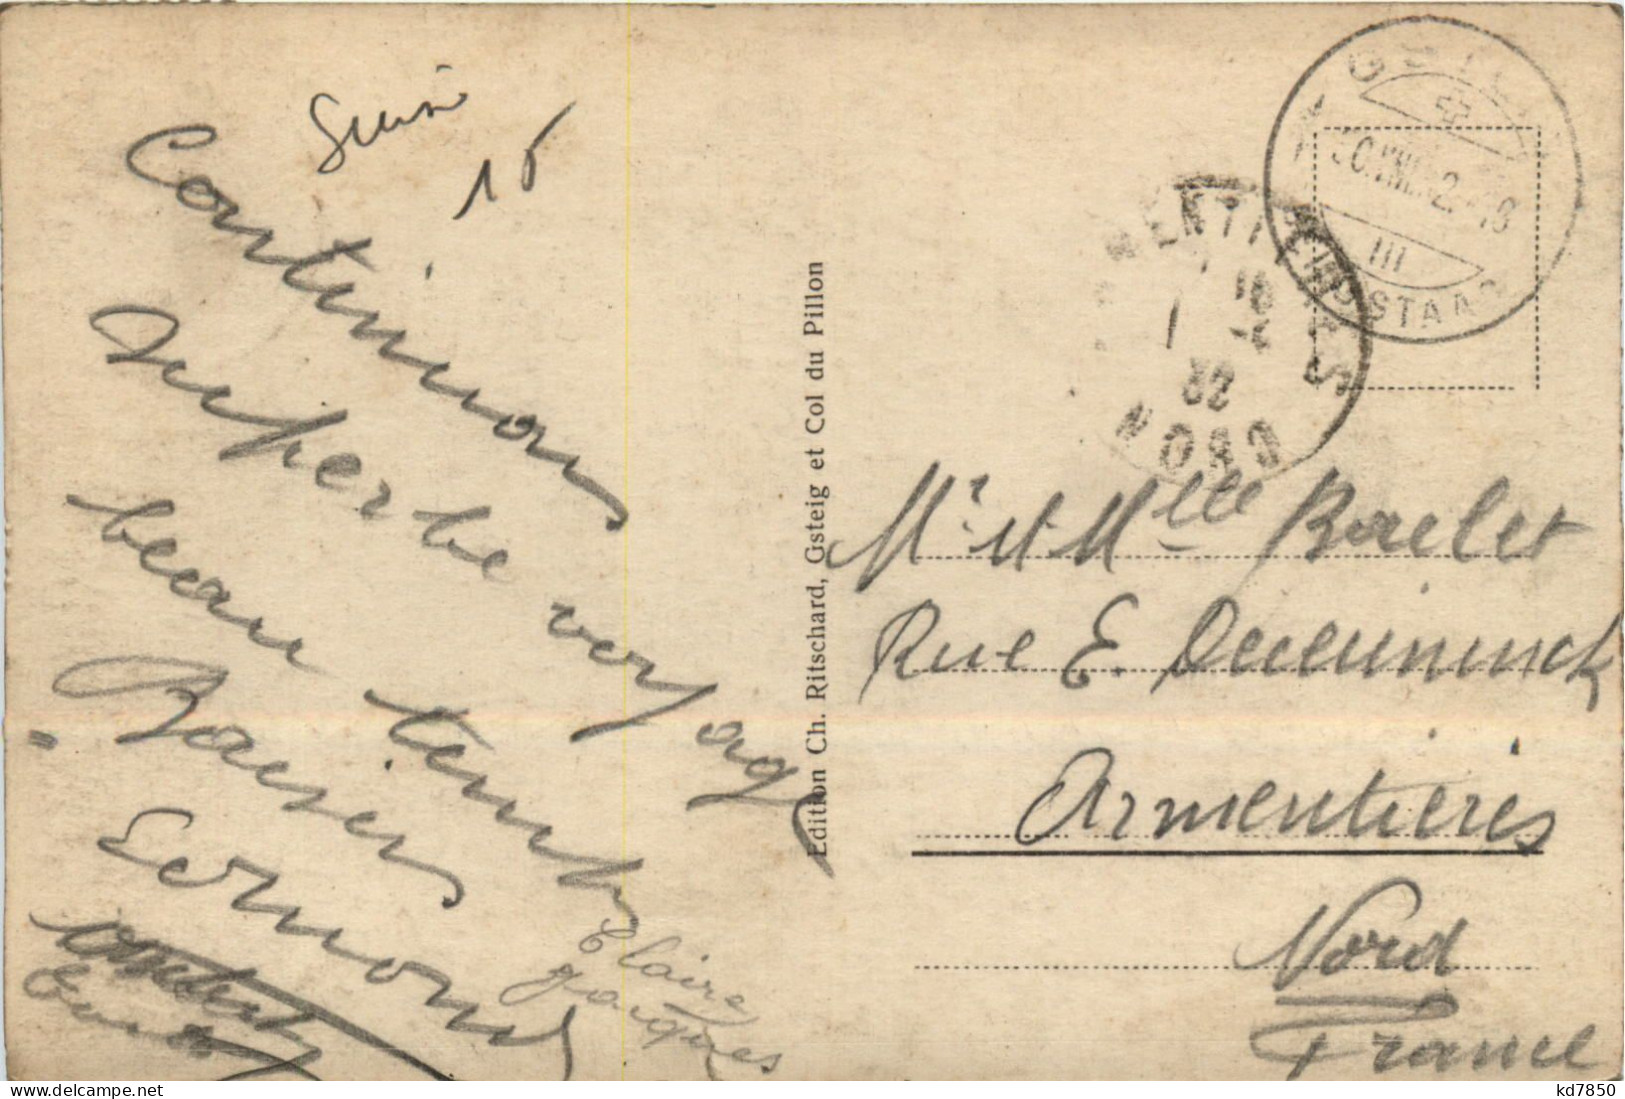 Suisse
15
Continuons
superbe voyage
beau temps
Baisers
Edmond
Claire
Jacques
Edition Ch. Ritschard, Gsteig et Col du Pillon
GSTAAD
III
ARMENTIERES
1
18
32
NORD
Mr et Mlle Baelet
Rue E. Deceuninck
Armentières
Nord
France
kd7850